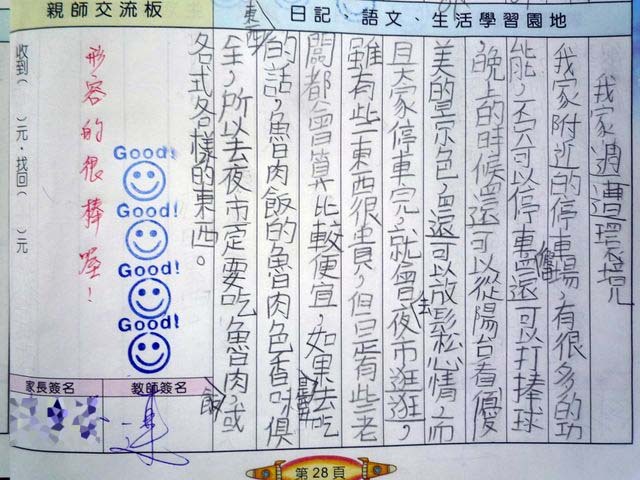 親師交流板
日記、語文、生活學習園地
我家週遭環境
我家附近的停車場,有很多的功
能,不只可以停車還可以打棒球
,晚上的時候還可以從陽台看優
美的景色,還可以放鬆心情,而
且大家停車完就會去夜市逛逛,
雖有些東西很貴,但是有些老
闆都會算比較便宜,如果去吃
的話,魯肉飯的魯肉色香味俱
全,所以去夜市一定要吃魯肉飯,或
各式各樣的東西。
形容的很棒喔!
Good!
Good!
Good!
Good!
收到( )元,找回( )元
家長簽名
教師簽名
第28頁